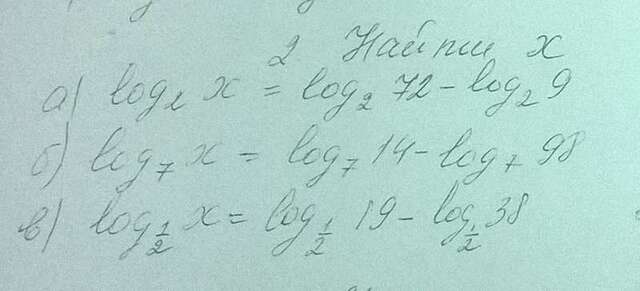 2 Найти x
а) log₂ x = log₂ 72 - log₂ 9
б) log₇ x = log₇ 14 - log₇ 98
в) log½ x = log½ 19 - log½ 38